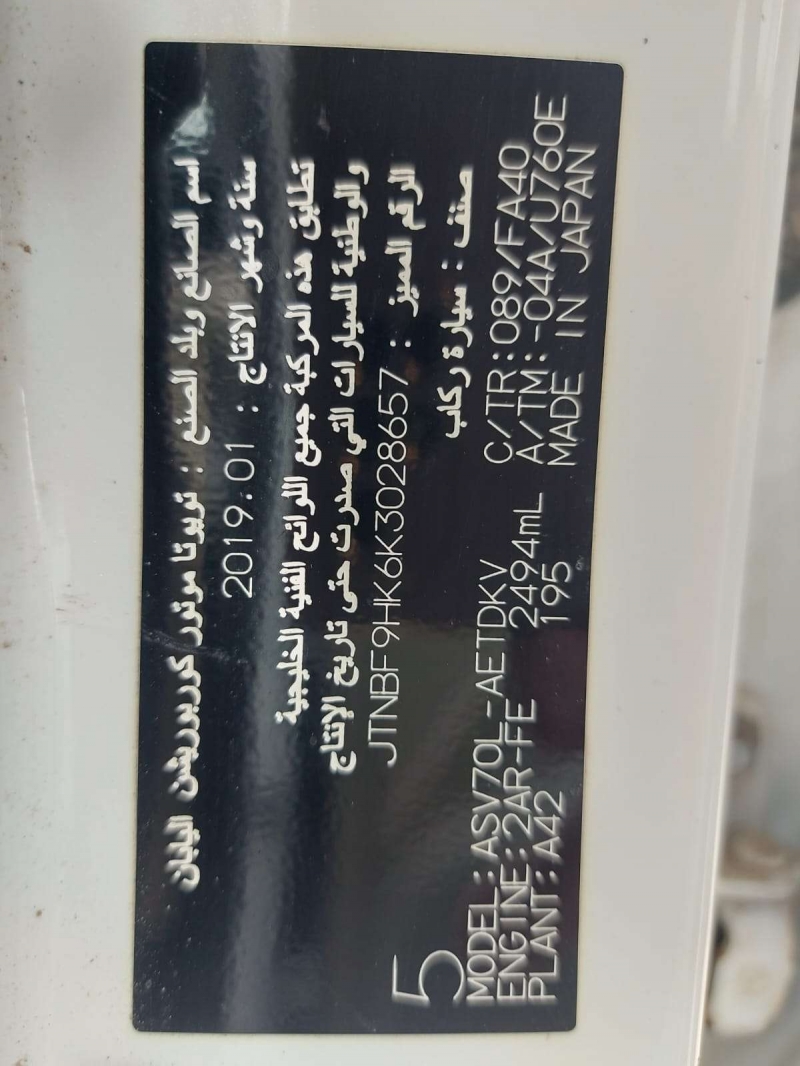 اسم الصانع وبلد الصنع : تويوتا موتور كوربوريشن اليابان
سنة وشهر الانتاج : 2019.01
تطابق هذه المركبة جميع اللوائح الفنية الخليجية
والوطنية للسيارات التي صدرت حتى تاريخ الإنتاج
الرقم المميز : JTNBF9HK6K3028657
صنف : سيارة ركاب
5
MODEL:ASV70L-AETDKV C/TR:089/FA40
ENGINE:2AR-FE 2494mL A/TM:-04A/U760E
PLANT:A42 195 MADE IN JAPAN